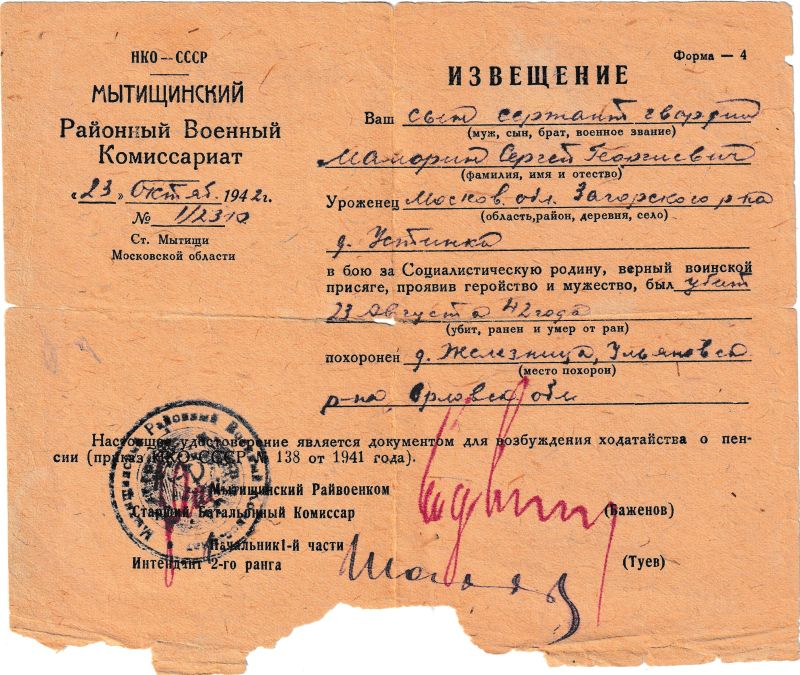 НКО—СССР
МЫТИЩИНСКИЙ
Районный Военный
Комиссариат
„23„ Октяб. 1942г.
№
Ст. Мытищи
Московской области
Форма — 4
ИЗВЕЩЕНИЕ
Ваш сын сержант гвардии
(муж, сын, брат, военное звание)
Маморин Сергей Георгиевич
(фамилия, имя и отество)
Уроженец Москов. обл. Загорского р-на
(область, район, деревня, село)
д. Устинка
в бою за Социалистическую родину, верный воинской
присяге, проявив геройство и мужество, был убит
23 Августа 42 года
(убит, ранен и умер от ран)
похоронен д. Железница, Ульяновск.
(место похорон)
р-на Орловск. обл
Настоящее удостоверение является документом для возбуждения ходатайства о пен-
сии (приказ НКО СССР № 138 от 1941 года).
Мытищинский Райвоенком
Старший Батальонный Комиссар
(Баженов)
Начальник 1-й части
Интендант 2-го ранга
(Туев)